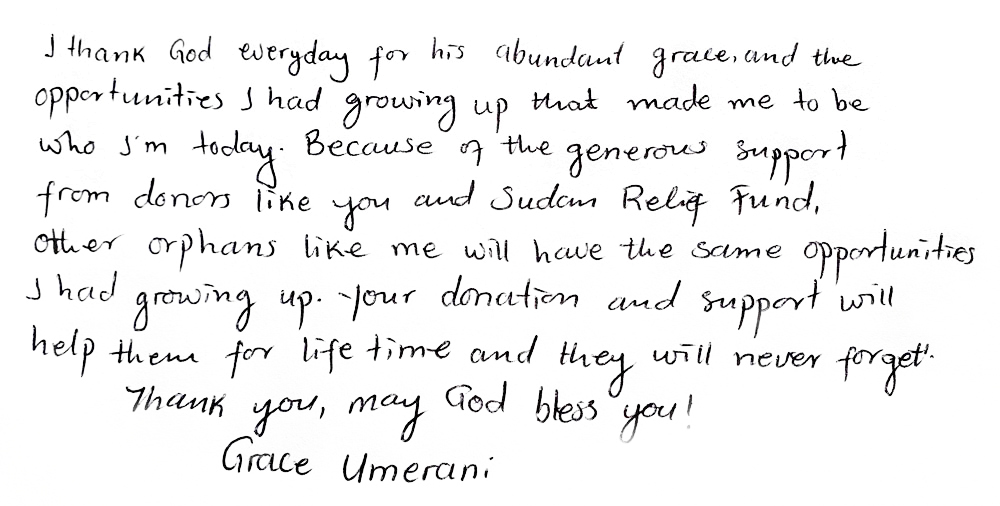 I thank God everyday for his abundant grace, and the
opportunities I had growing up that made me to be
who I'm today. Because of the generous support
from donors like you and Sudan Relief Fund,
other orphans like me will have the same opportunities
I had growing up. Your donation and support will
help them for life time and they will never forget.
Thank you, may God bless you!
Grace Umerani